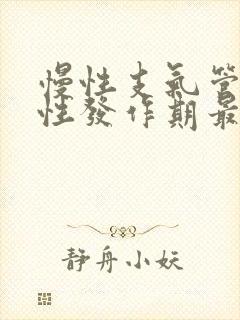 慢性支氣管
性發作期最
静舟小妖